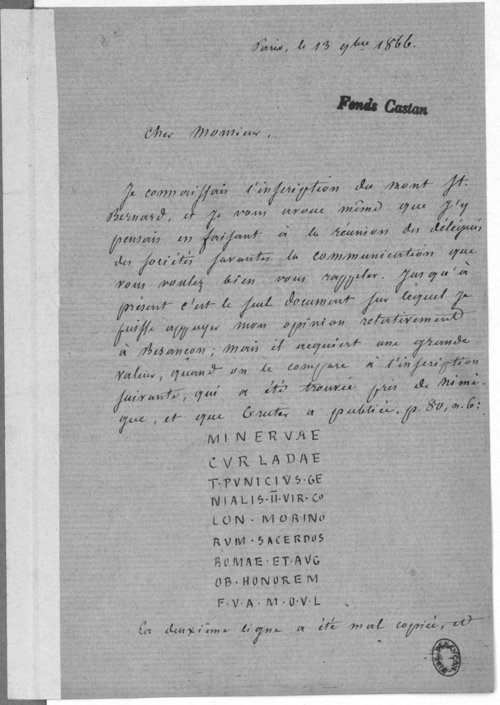 Paris, le 13 9bre 1866.
Fonds Castan
Cher Monsieur,
Je connaissais l'inscription du mont St.
Bernard, et je vous avoue même que j'y
pensais en faisant à la réunion des délégués
des sociétés savantes la communication que
vous voulez bien vous rappeler. Jusqu'à
présent c'est le seul document sur lequel je
puisse appuyer mon opinion relativement
à Besançon; mais il acquiert une grande
valeur, quand on le compare à l'inscription
suivante, qui a été trouvée près de Nimè-
gue, et que Gruter a publiée, p. 80, n. 6:
MINERVAE
CVRLADAE
T·PVNICIVS·GE
NIALIS·II·VIR·CO
LON·MORINO
RVM·SACERDOS
ROMAE·ET·AVG
OB·HONOREM
F·V·A·M·O·V·L
La deuxième ligne a été mal copiée, et